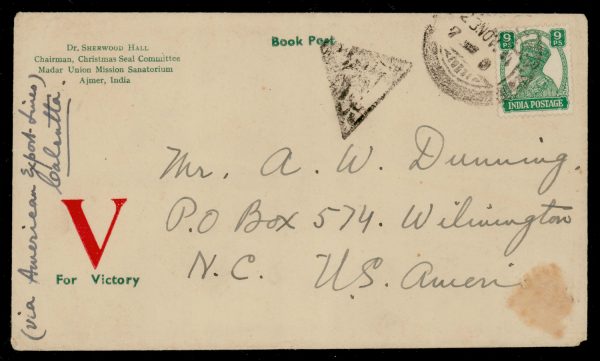 Dr. Sherwood Hall
Chairman, Christmas Seal Committee
Madar Union Mission Sanatorium
Ajmer, India
Book Post
9 9
PS PS
INDIA POSTAGE
(via American Export Lines)
Calcutta.
Mr. A. W. Dunning.
P.O Box 574. Wilmington
N.C. U.S. Ameri
V
For Victory